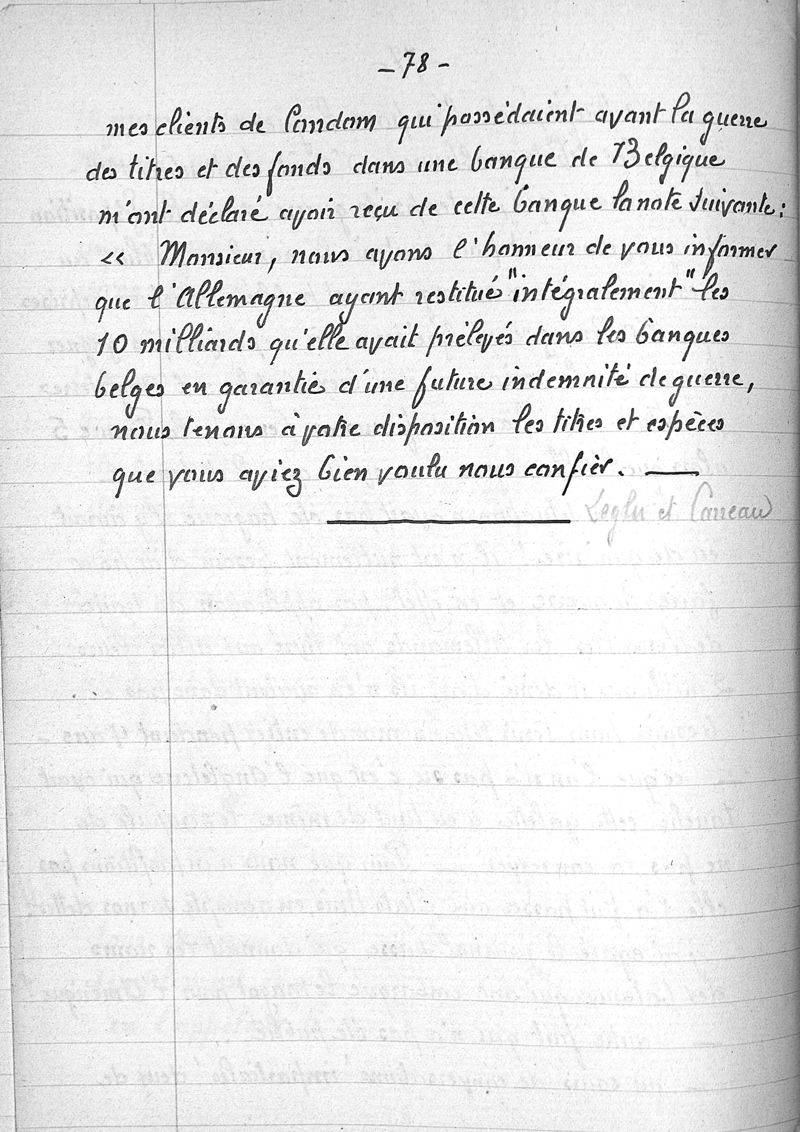 - 78 -
mes clients de Condom qui possédaient avant la guerre
des titres et des fonds dans une banque de Belgique
m'ont déclaré avoir reçu de cette banque la note suivante :
« Monsieur, nous avons l'honneur de vous informer
que l'Allemagne ayant restitué "intégralement" les
10 milliards qu'elle avait prélevés dans les banques
belges en garantie d'une future indemnité de guerre,
nous tenons à votre disposition les titres et espèces
que vous aviez bien voulu nous confier. —
et